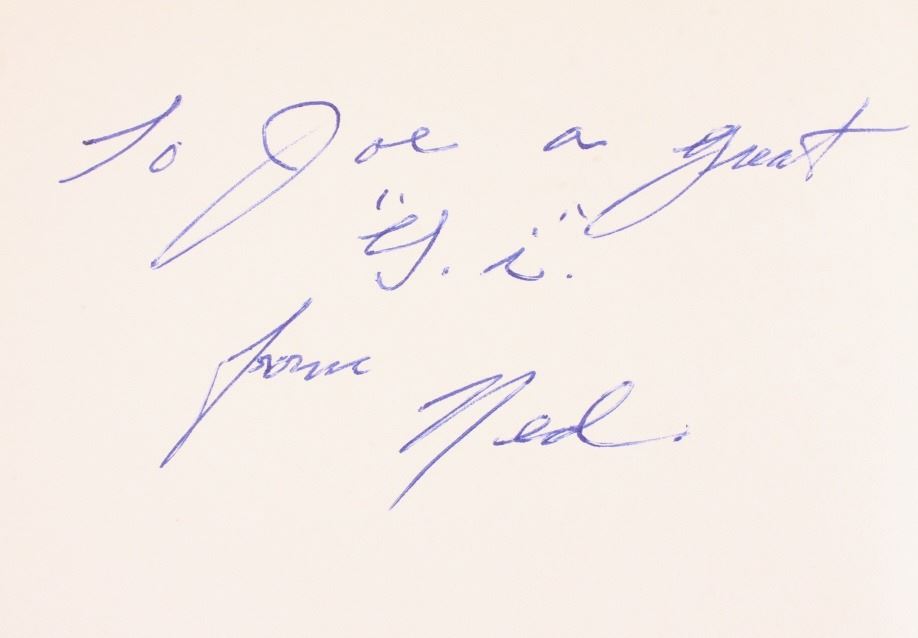 To Joe a great
"G. i."
from
Ned.